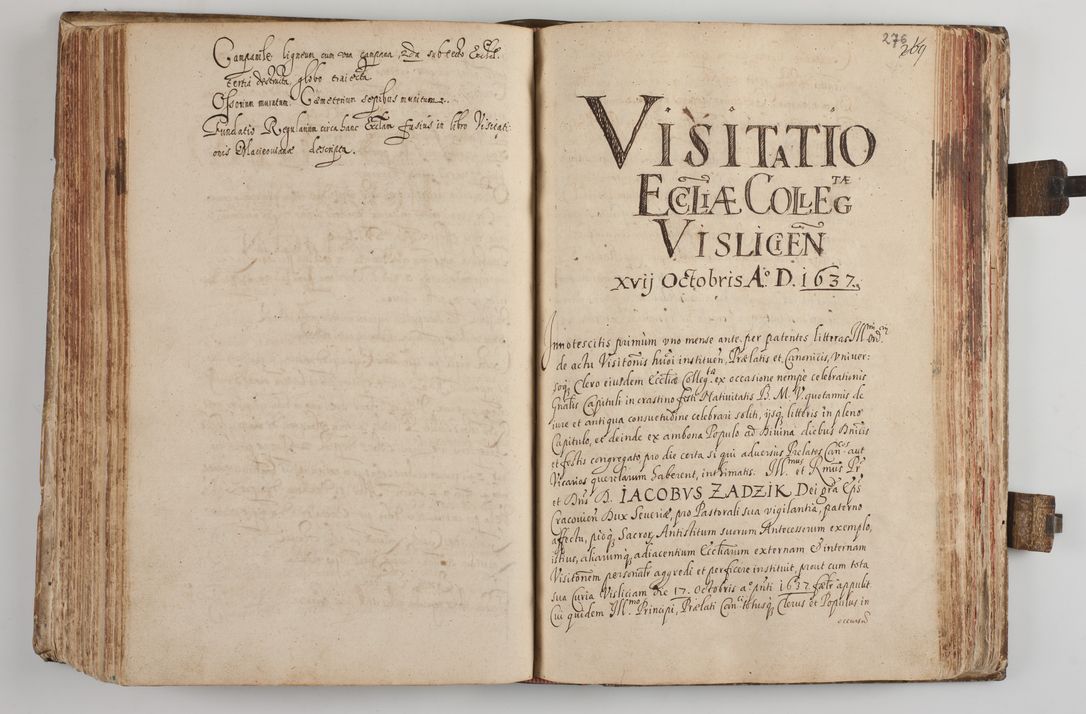 Campanile ligneum cum una campana 2da sub tecto Eccliae.
tertia destructa globo traiecta.
Ossorium muratum. Caemeterium sepibus munitum.
Fundatio Regularium circa hanc Eccliam fusius in libro Visitati
onis Maciroviana descripta.
276
269
VISITATIO
ECCLIÆ COLLEGTÆ
VISLICIEÑ
xvij Octobris Aº D. 1637.
Innotescitis primùm uno mense ante per patentes litteras Illmi
de actu Visitõnis huõi instituen, Prælatis et Canonicis, Univer:
soq; Clero eiusdem Eccliæ Collegtæ ex occasione nempè celebrationis
Gnalis Capituli in crastino festi Nativitatis B. M. V. quotannis de
iure et antiqua consuetudine celebrari soliti, ijsq; litteris in pleno
Capitulo, et deinde ex ambona Populo ad Divina diebus Dnicis
et festis congregato pro die certa si qui adversus Prelatos Cancos aut
Vicarios querelarum haberent, intimatis. Illmus et Rmus Pr
et Dns D. IACOBVS ZADZIK Dei gra Eps
Cracovien Dux Severiæ, pro Pastorali sua vigilantia, paterno
affectu, pioq; Sacror, Antistitum suorum Antecessorum exemplo,
istius, aliarumq; adiacentium Eccliarum externam & internam
Visitõnem personalr aggredi et perficere instituit, prout cum tota
sua Curia Visliciam die 17. Octobris aº pnti 1637. appulit
Cui quidem Illmo Principi, Prælati Canci totusq; Clerus et Populus in